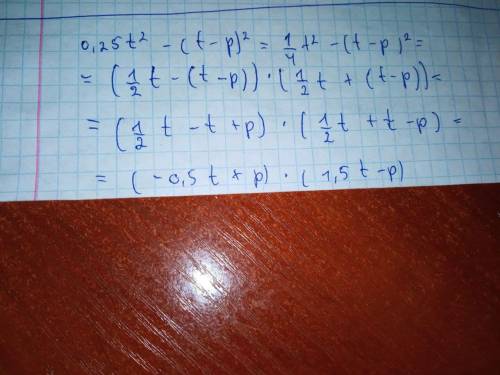 0,25t² - (t-p)² = 1/4 t² - (t-p)² =
= (1/2 t - (t-p)) · (1/2 t + (t-p)) =
= (1/2 t - t + p) · (1/2 t + t - p) =
= (-0,5t + p) · (1,5t - p)